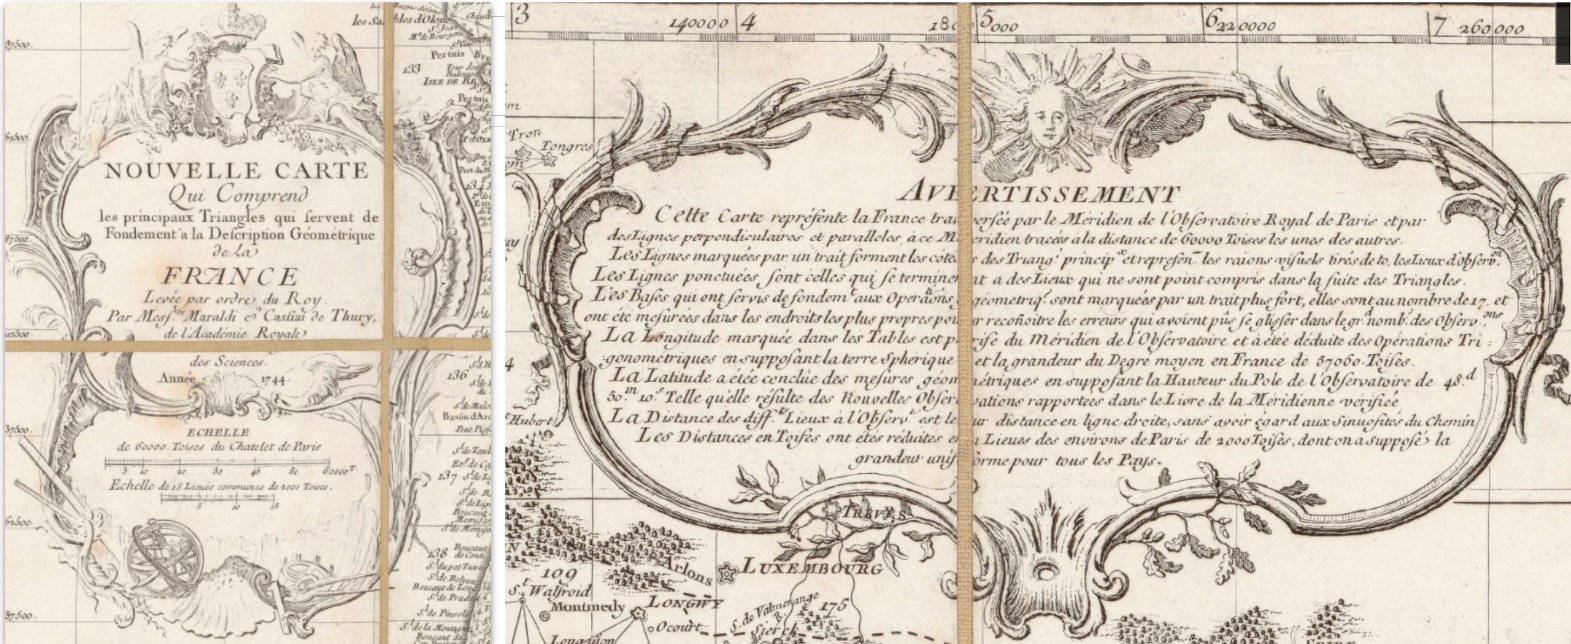 NOUVELLE CARTE
Qui Comprend
les principaux Triangles qui servent de
Fondement a la Description Géometrique
de la
FRANCE
Levée par ordre du Roy.
Par Mess.rs Maraldi & Cassini de Thury,
de l'Académie Royale
des Sciences.
Année 1744.
ECHELLE
de 60000 Toises du Chatelet de Paris
5 10 20 30 40 50 60000T
Echelle de 15 Lieues communes de 2000 Toises.
5 10 15
133
ISLE DE RE
Pertuis
136
137
138
3 140000 4 5000 6 220000 7 260000
Tongres
AVERTISSEMENT
Cette Carte représente la France traversée par le Méridien de l'Observatoire Royal de Paris et par
des Lignes perpendiculaires et paralleles a ce Meridien tracées à la distance de 60000 Toises les unes des autres.
Les Lignes marquées par un trait forment les cotes des Triang.s princip.x et represen.t les raions visuels tirés de to.s les Lieux d'observ.on
Les Lignes ponctuées, sont celles qui se terminent a des Lieux qui ne sont point compris dans la suite des Triangles.
Les Bases qui ont servis de fondem.t aux Operations géometriq.s sont marquées par un trait plus fort, elles sont au nombre de 17. et
ont éte mesurées dans les endroits les plus propres pour reconoitre les erreurs qui avoient pûs se glisser dans le gr. nomb. des Observ.ons
La Longitude marquée dans les Tables est prise du Méridien de l'Observatoire et à étée déduite des Opérations Tri:
gonometriques en supposant la terre Spherique et la grandeur du Degre moyen en France de 57060. Toises.
La Latitude a étée conclüe des mesures géometriques en supposant la Hauteur du Pole de l'Observatoire de 48.d
50.m 10.s Telle quelle résulte des Nouvelles Observations rapportées dans le Livre de la Méridienne vérifiée
La Distance des diff.ts Lieux à l'Observ.re est leur distance en ligne droite, sans avoir égard aux Sinuosités du Chemin
Les Distances en Toises ont étés réduites en Lieues des environs de Paris de 2000 Toises, dont on a supposé la
grandeur uniforme pour tous les Pays.
Hubert
TREVES
Arlons
LUXEMBOURG
109
S.t Walfroid
Montmedy
LONGWY
Ocourt
175
Sierck